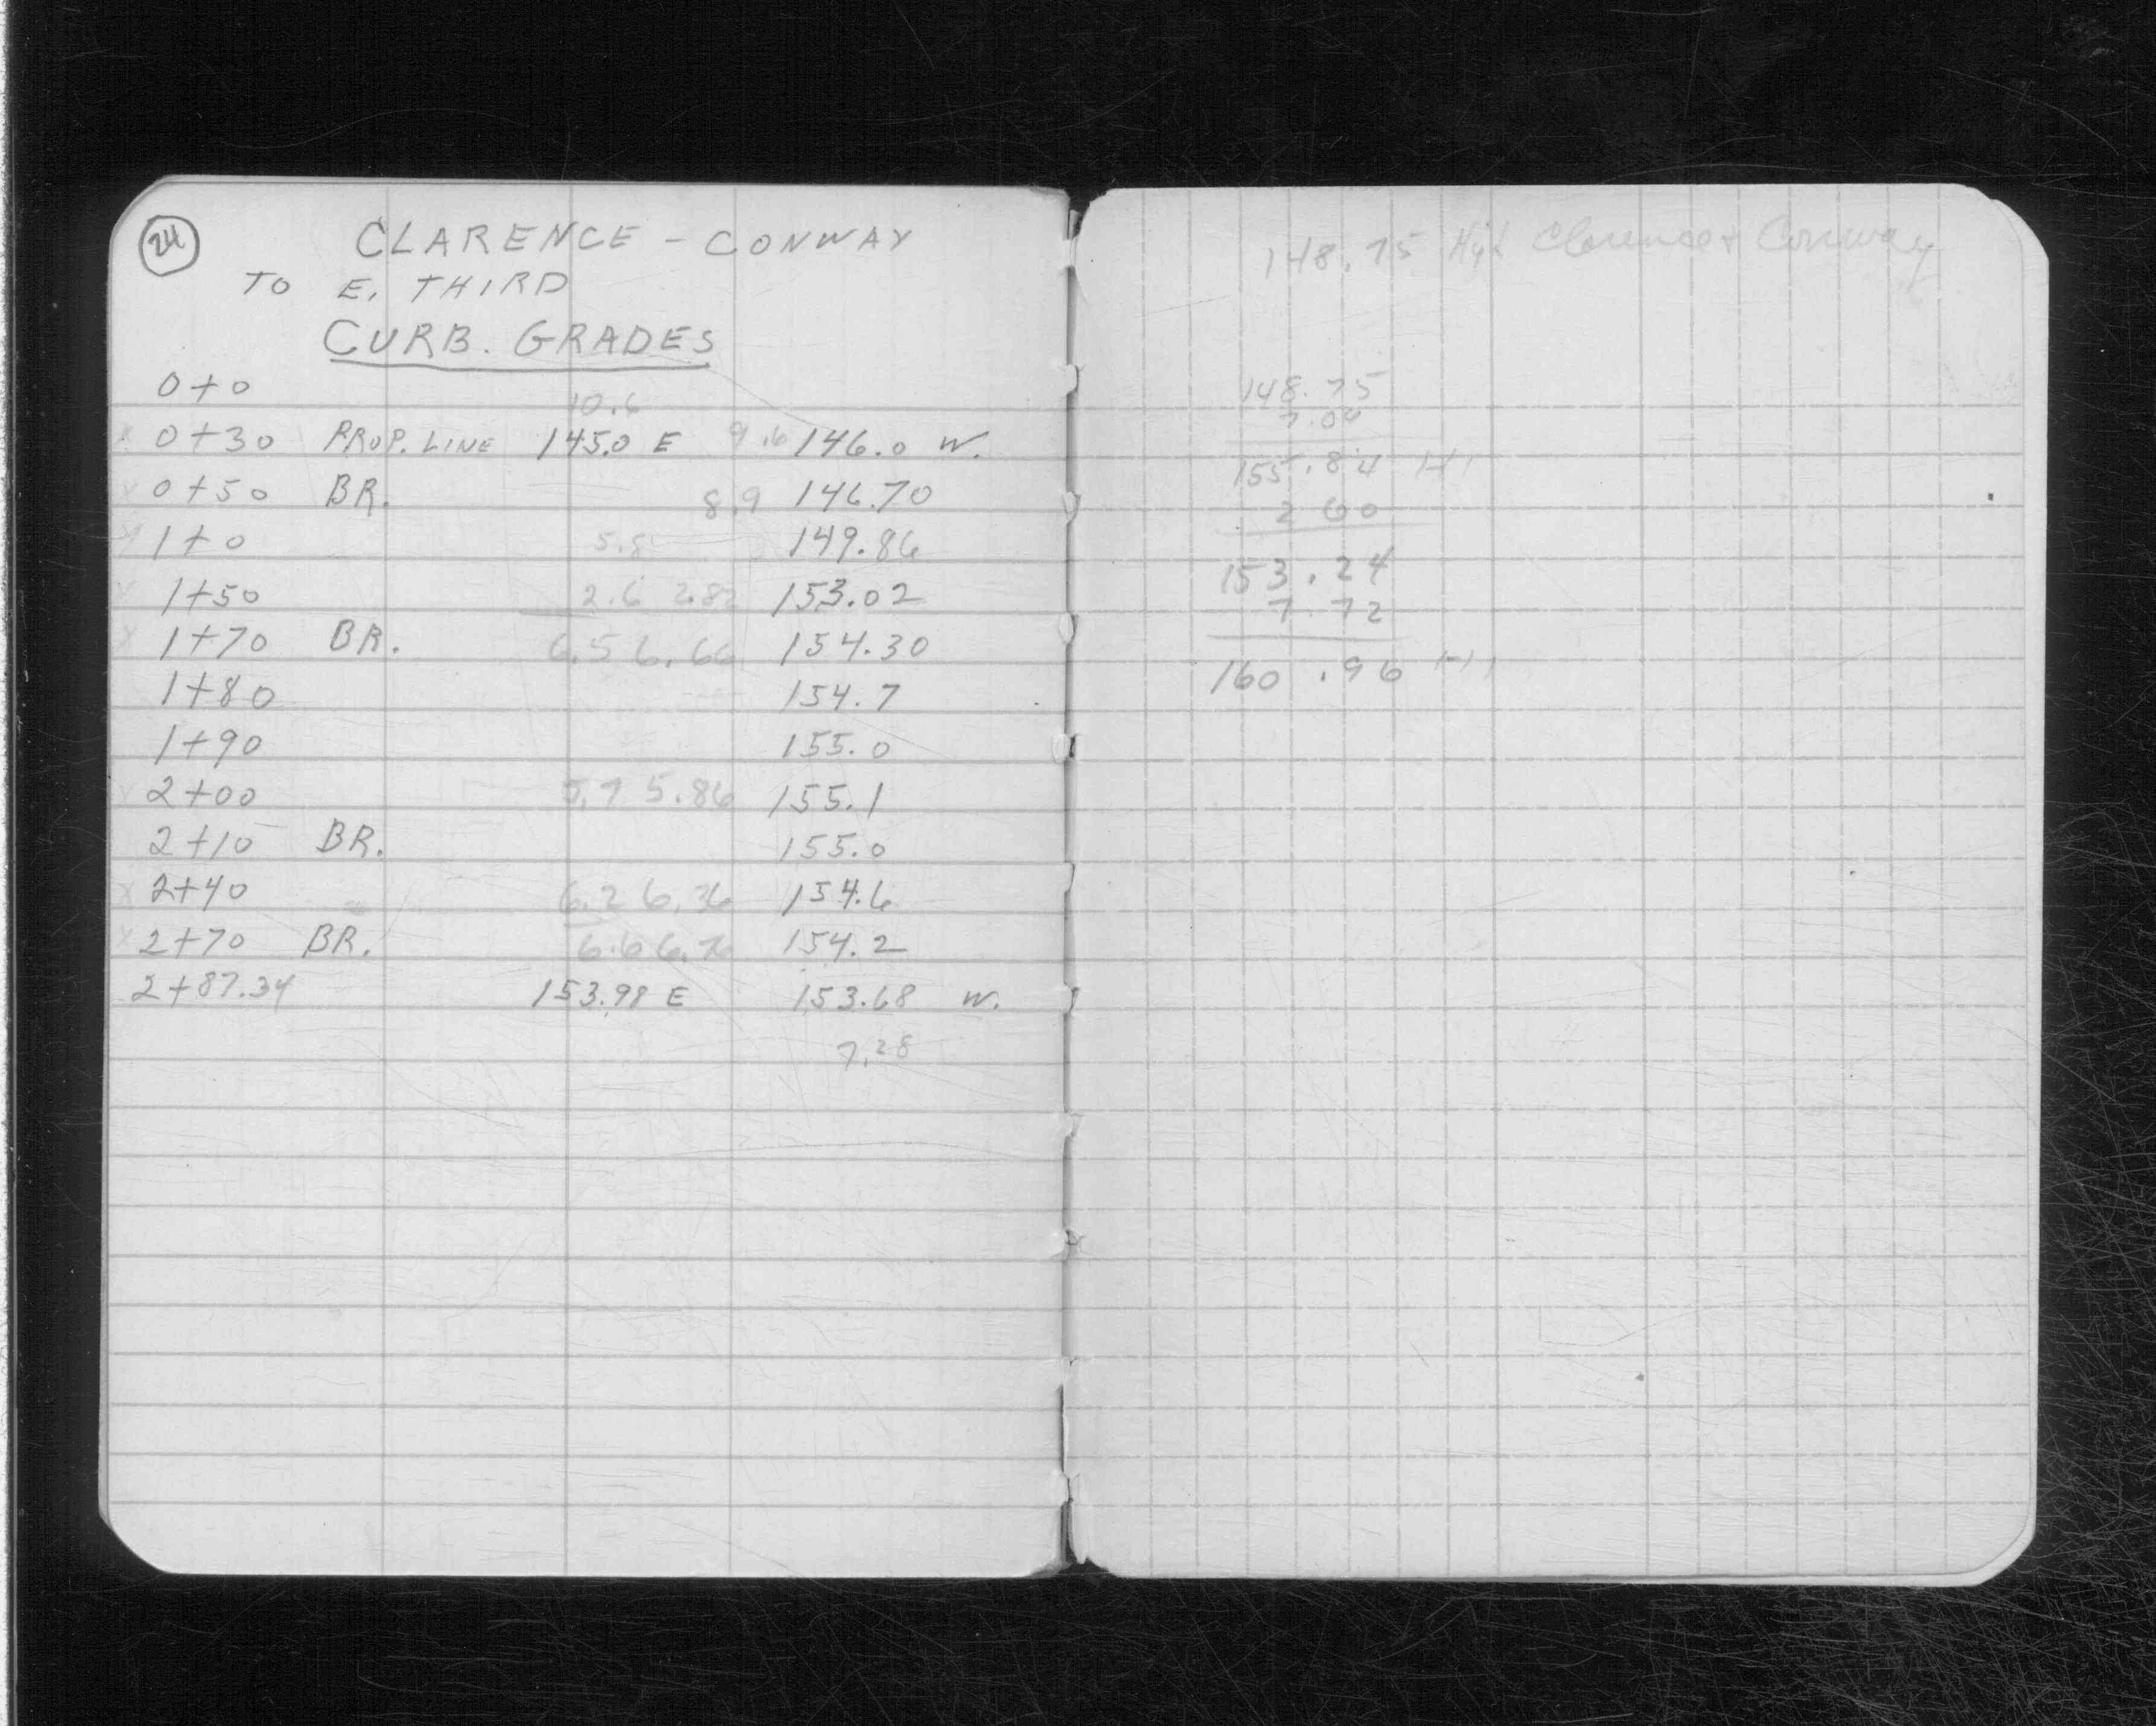 24
CLARENCE - CONWAY
TO E. THIRD
CURB. GRADES
0+0
10.6
x 0+30 PROP. LINE 145.0 E 9.6 146.0 W.
x 0+50 BR. 8.9 146.70
x 1+0 5.8 149.86
x 1+50 2.6 2.82 153.02
x 1+70 BR. 6.5 6.66 154.30
1+80 154.7
1+90 155.0
x 2+00 5.7 5.86 155.1
2+10 BR. 155.0
x 2+40 6.2 6.36 154.6
x 2+70 BR. 6.6 6.76 154.2
2+87.34 153.98 E 153.68 W.
7.28
148.75 Hyd Clarence + Conway
148.75
7.09
155.84 HI
2 60
153.24
7.72
160.96 HI